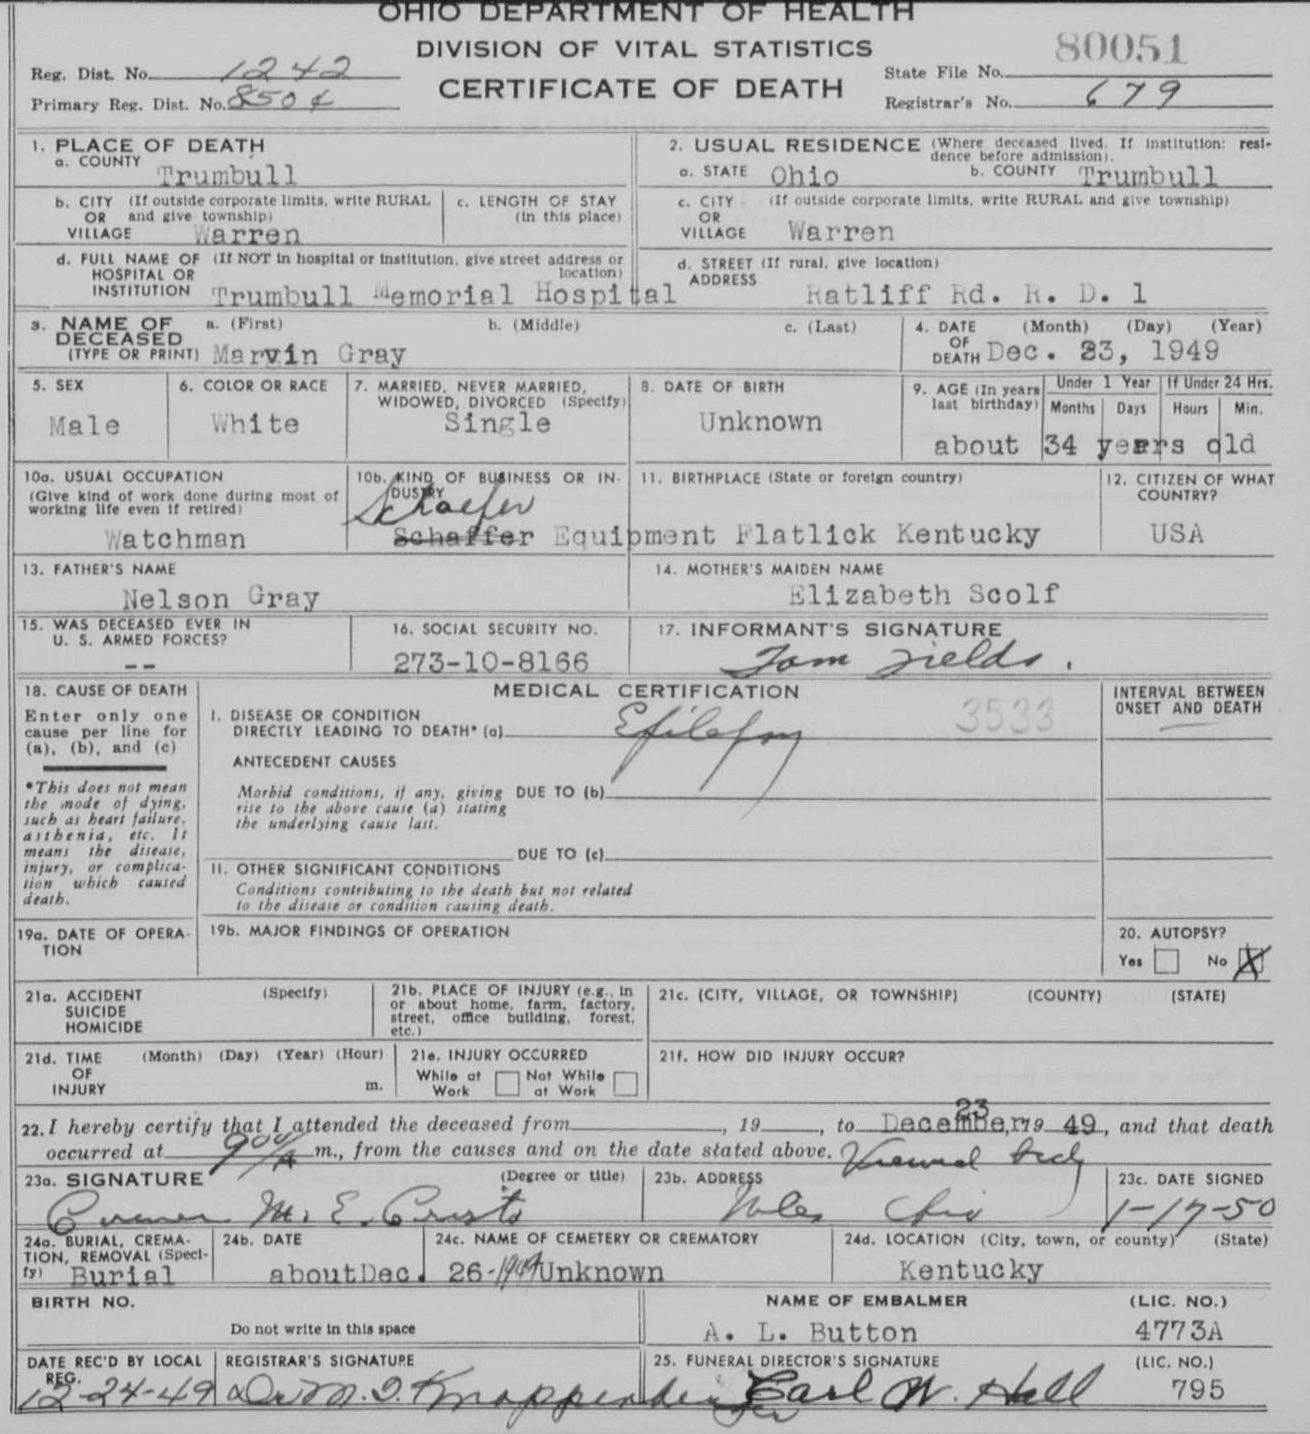 OHIO DEPARTMENT OF HEALTH
DIVISION OF VITAL STATISTICS
CERTIFICATE OF DEATH
Reg. Dist. No. 1242
Primary Reg. Dist. No.
80051
State File No.
Registrar's No. 679
1. PLACE OF DEATH
a. COUNTY
Trumbull
b. CITY (If outside corporate limits, write RURAL
OR and give township)
VILLAGE Warren
c. LENGTH OF STAY
(in this place)
d. FULL NAME OF (If NOT in hospital or institution, give street address or
HOSPITAL OR location)
INSTITUTION Trumbull Memorial Hospital
2. USUAL RESIDENCE (Where deceased lived. If institution: resi-
dence before admission).
a. STATE Ohio b. COUNTY Trumbull
c. CITY (If outside corporate limits, write RURAL and give township)
OR
VILLAGE Warren
d. STREET (If rural, give location)
ADDRESS Ratliff Rd. R. D. 1
3. NAME OF a. (First) b. (Middle) c. (Last)
DECEASED
(TYPE OR PRINT) Marvin Gray
4. DATE (Month) (Day) (Year)
OF
DEATH Dec. 23, 1949
5. SEX
Male
6. COLOR OR RACE
White
7. MARRIED, NEVER MARRIED,
WIDOWED, DIVORCED (Specify)
Single
8. DATE OF BIRTH
Unknown
9. AGE (In years
last birthday)
Under 1 Year If Under 24 Hrs.
Months Days Hours Min.
about 34 years old
10a. USUAL OCCUPATION
(Give kind of work done during most of
working life even if retired)
Watchman
10b. KIND OF BUSINESS OR IN-
DUSTRY
Schaefer
Schaffer Equipment
11. BIRTHPLACE (State or foreign country)
Flatlick Kentucky
12. CITIZEN OF WHAT
COUNTRY?
USA
13. FATHER'S NAME
Nelson Gray
14. MOTHER'S MAIDEN NAME
Elizabeth Scolf
15. WAS DECEASED EVER IN
U. S. ARMED FORCES?
--
16. SOCIAL SECURITY NO.
273-10-8166
17. INFORMANT'S SIGNATURE
Tom Fields.
18. CAUSE OF DEATH
Enter only one
cause per line for
(a), (b), and (c)
*This does not mean
the mode of dying,
such as heart failure,
asthenia, etc. It
means the disease,
injury, or complica-
tion which caused
death.
MEDICAL CERTIFICATION
I. DISEASE OR CONDITION
DIRECTLY LEADING TO DEATH* (a) Epilepsy 3533
ANTECEDENT CAUSES
Morbid conditions, if any, giving DUE TO (b)
rise to the above cause (a) stating
the underlying cause last.
DUE TO (c)
II. OTHER SIGNIFICANT CONDITIONS
Conditions contributing to the death but not related
to the disease or condition causing death.
INTERVAL BETWEEN
ONSET AND DEATH
19a. DATE OF OPERA-
TION
19b. MAJOR FINDINGS OF OPERATION
20. AUTOPSY?
Yes No X
21a. ACCIDENT (Specify)
SUICIDE
HOMICIDE
21b. PLACE OF INJURY (e.g., in
or about home, farm, factory,
street, office building, forest,
etc.)
21c. (CITY, VILLAGE, OR TOWNSHIP) (COUNTY) (STATE)
21d. TIME (Month) (Day) (Year) (Hour)
OF
INJURY m.
21e. INJURY OCCURRED
While at Not While
Work at Work
21f. HOW DID INJURY OCCUR?
22. I hereby certify that I attended the deceased from , 19 , to December, 23 19 49, and that death
occurred at 900/A m., from the causes and on the date stated above. Viewed body
23a. SIGNATURE (Degree or title)
Coroner M. E.
23b. ADDRESS
Niles Ohio
23c. DATE SIGNED
1-17-50
24a. BURIAL, CREMA-
TION, REMOVAL (Speci-
fy) Burial
24b. DATE
about Dec. 26-1949
24c. NAME OF CEMETERY OR CREMATORY
Unknown
24d. LOCATION (City, town, or county) (State)
Kentucky
BIRTH NO.
Do not write in this space
NAME OF EMBALMER (LIC. NO.)
A. L. Button 4773A
DATE REC'D BY LOCAL
REG.
12-24-49
REGISTRAR'S SIGNATURE
25. FUNERAL DIRECTOR'S SIGNATURE (LIC. NO.)
Earl W. Hall 795